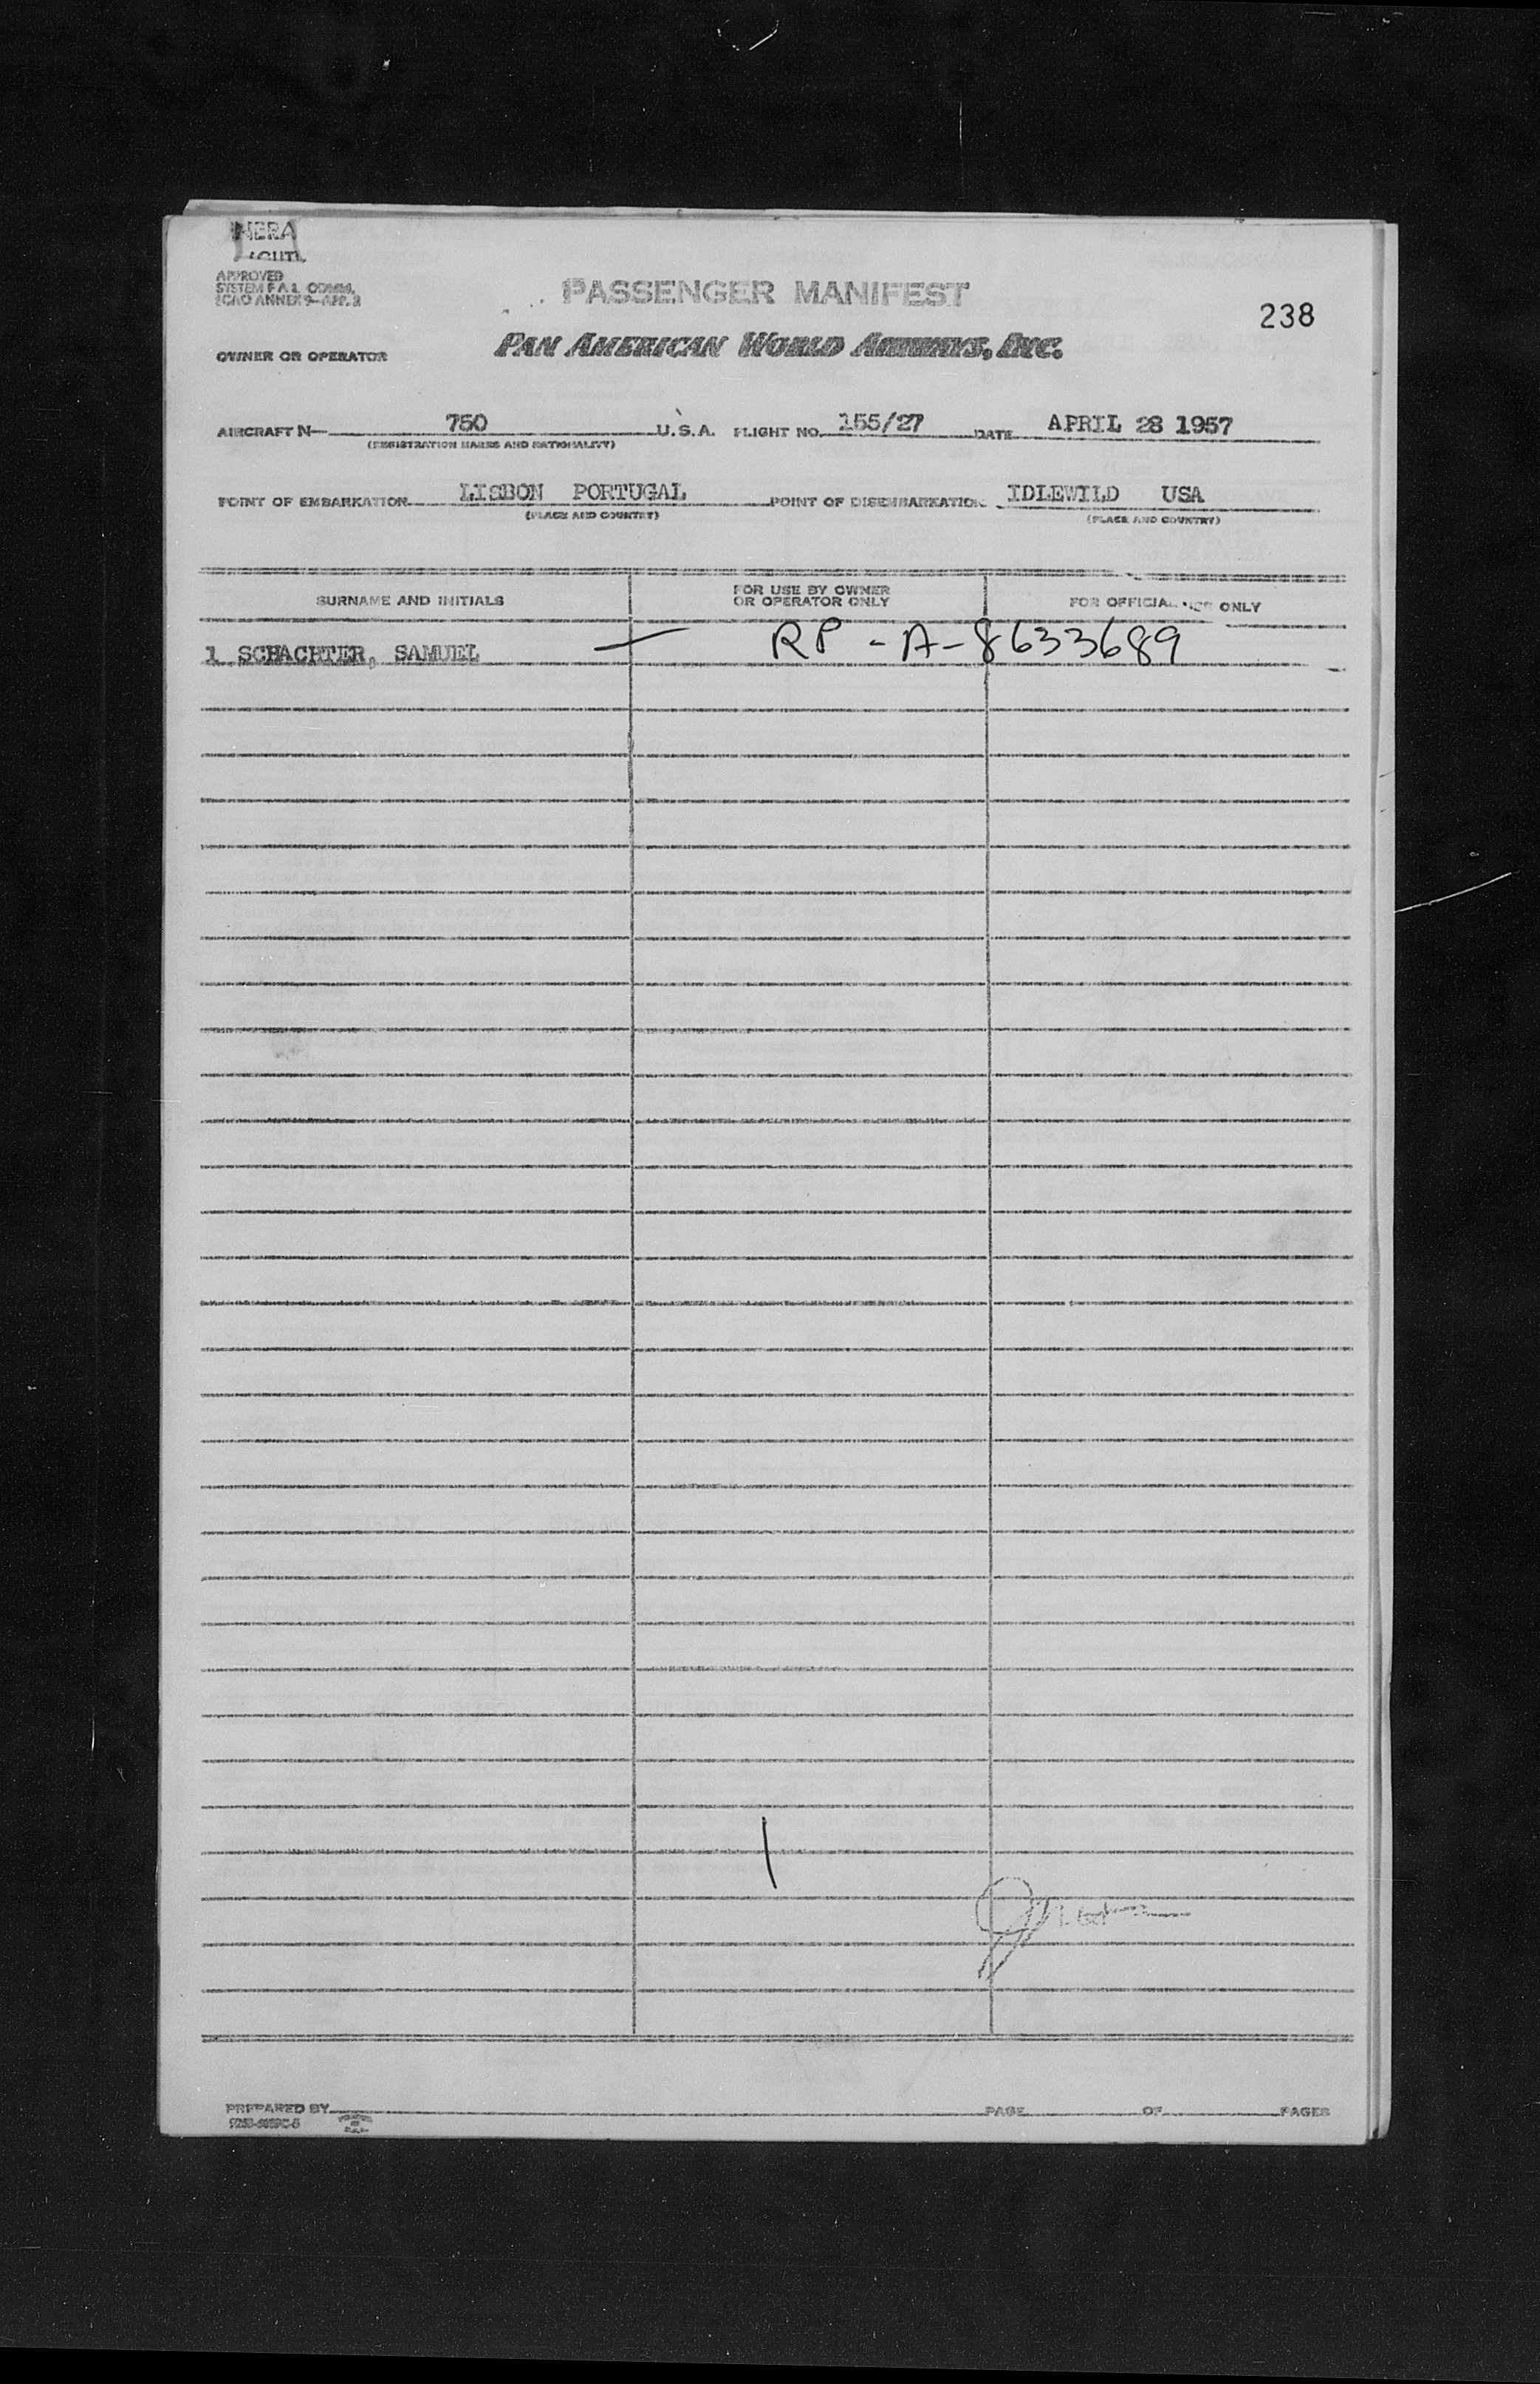 GENERAL
APPROVED
SYSTEM F.A.L. COMM.
ICAO ANNEX 9-APP. 2
PASSENGER MANIFEST
238
OWNER OR OPERATOR PAN AMERICAN WORLD AIRWAYS, INC.
AIRCRAFT N- 750 U.S.A. FLIGHT NO. 155/27 DATE APRIL 28 1957
(REGISTRATION MARKS AND NATIONALITY)
POINT OF EMBARKATION LISBON PORTUGAL POINT OF DISEMBARKATION IDLEWILD USA
(PLACE AND COUNTRY) (PLACE AND COUNTRY)
SURNAME AND INITIALS FOR USE BY OWNER OR OPERATOR ONLY FOR OFFICIAL USE ONLY
1 SCHACHTER, SAMUEL — RP - A-8633689
1
PREPARED BY PAGE OF PAGES